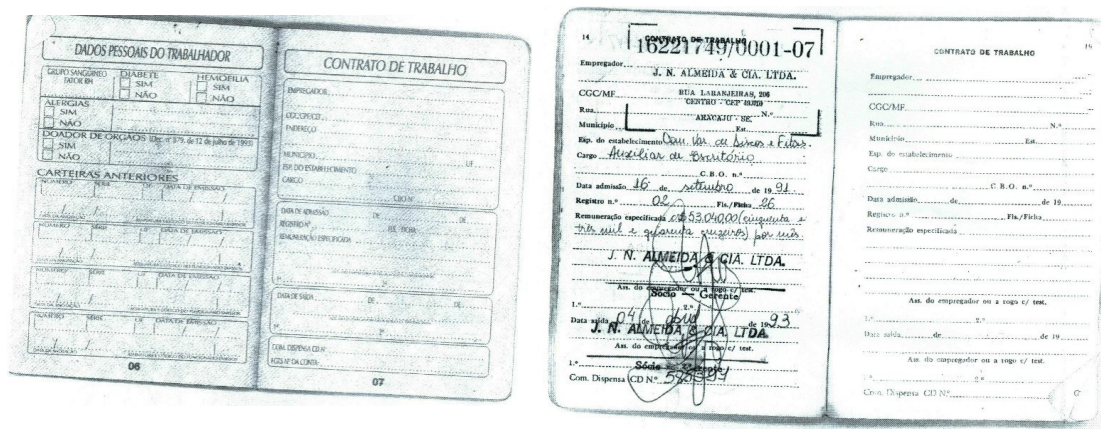 DADOS PESSOAIS DO TRABALHADOR
GRUPO SANGUÍNEO
FATOR RH
DIABETE
SIM
NÃO
HEMOFILIA
SIM
NÃO
ALERGIAS
SIM
NÃO
DOADOR DE ORGÃOS (Dec. nº 879, de 12 de julho de 1993)
SIM
NÃO
CARTEIRAS ANTERIORES
NÚMERO SÉRIE UF DATA DE EMISSÃO
NÚMERO SÉRIE UF DATA DE EMISSÃO
NÚMERO SÉRIE UF DATA DE EMISSÃO
NÚMERO SÉRIE UF DATA DE EMISSÃO
06
CONTRATO DE TRABALHO
EMPREGADOR
CGC/CPF/CEI
ENDEREÇO
MUNICÍPIO UF
ESP. DO ESTABELECIMENTO
CARGO
CBO Nº
DATA DE ADMISSÃO DE DE
REGISTRO Nº FLS. / FICHA
REMUNERAÇÃO ESPECIFICADA
1º 2º
DATA DE SAÍDA DE DE
1º 2º
COM. DISPENSA CD Nº
FGTS Nº DA CONTA
07
14
CONTRATO DE TRABALHO
16221749/0001-07
Empregador
J. N. ALMEIDA & CIA. LTDA.
CGC/MF
RUA LARANJEIRAS, 206
CENTRO - CEP
Rua N.º
ARACAJU - SE.
Município Est.
Esp. do estabelecimento Com. Var. de Discos e Fitas.
Cargo Auxiliar de Escritório
C.B.O. n.º
Data admissão 16 de setembro de 19 91
Registro n.º 02 Fls./Ficha 26
Remuneração especificada cr$ 53.040,00 (cinquenta e
três mil e quarenta cruzeiros) por mês.
J. N. ALMEIDA & CIA. LTDA.
Ass. do empregador ou a rogo c/ test.
Sócio - Gerente
1.º 2.º
Data saída 04 de abril de 19 93
J. N. ALMEIDA & CIA. LTDA.
Ass. do empregador ou a rogo c/ test.
1.º Sócio - Gerente
Com. Dispensa CD N.º
CONTRATO DE TRABALHO
Empregador
CGC/MF
Rua N.º
Município Est.
Esp. do estabelecimento
Cargo
C.B.O. n.º
Data admissão de de 19
Registro n.º Fls./Ficha
Remuneração especificada
Ass. do empregador ou a rogo c/ test.
1.º 2.º
Data saída de de 19
Ass. do empregador ou a rogo c/ test.
1.º 2.º
Com. Dispensa CD N.º